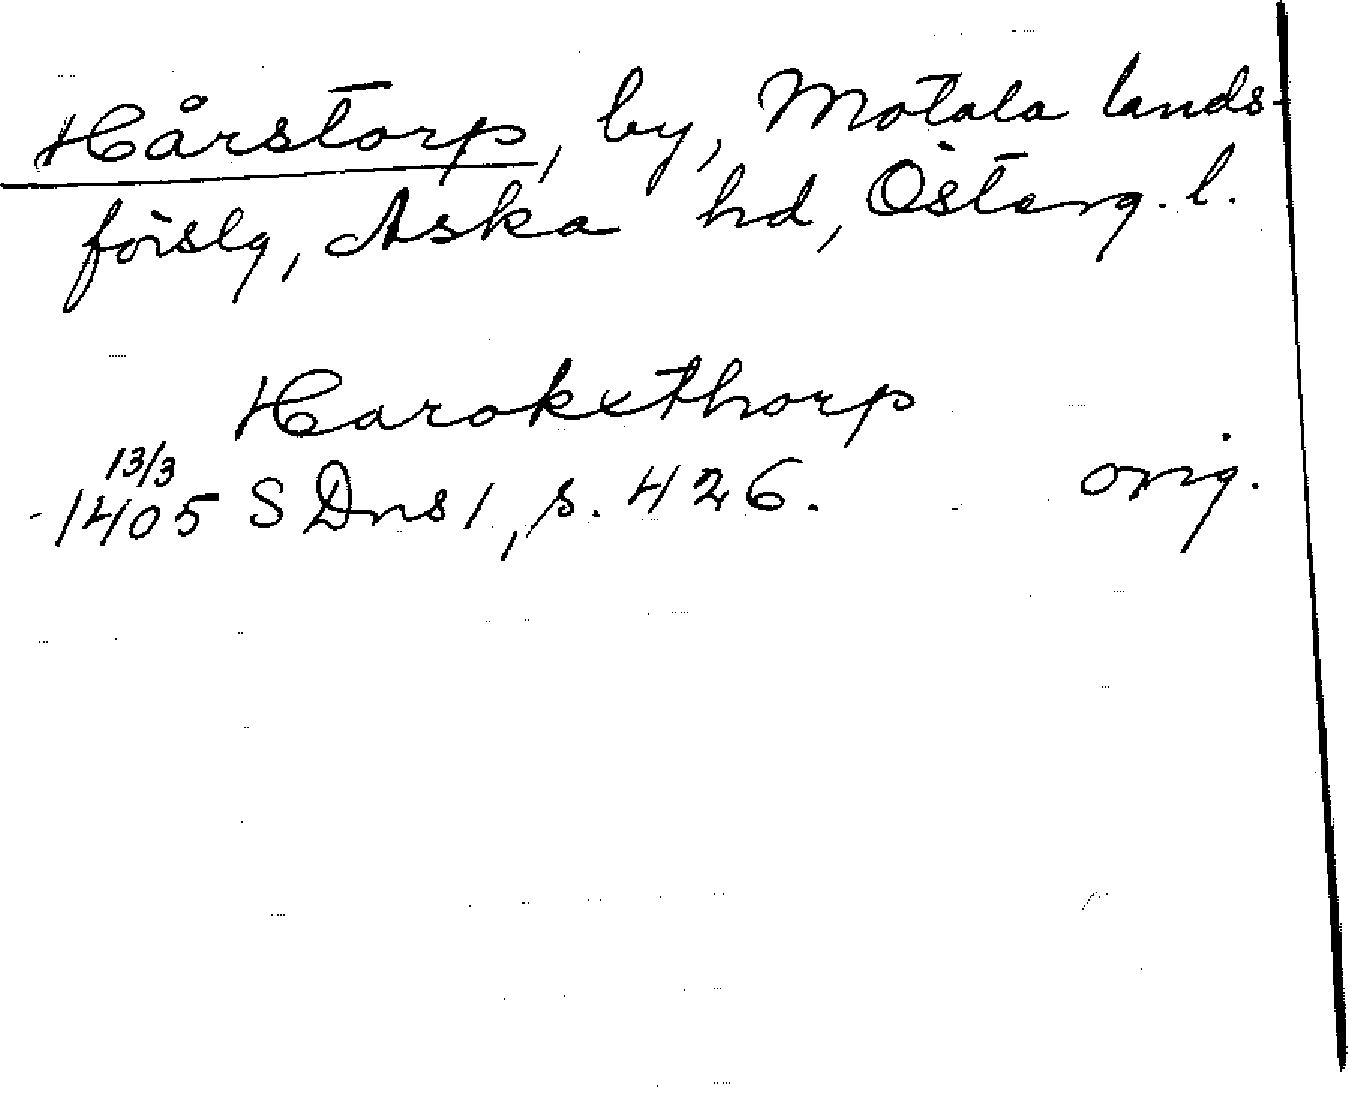 Hårstorp, by, Motala lands-
förslg, Aska hd, Österg. l.
Harokxthorp
13/3
1405 SDns 1, s. 426. orig.